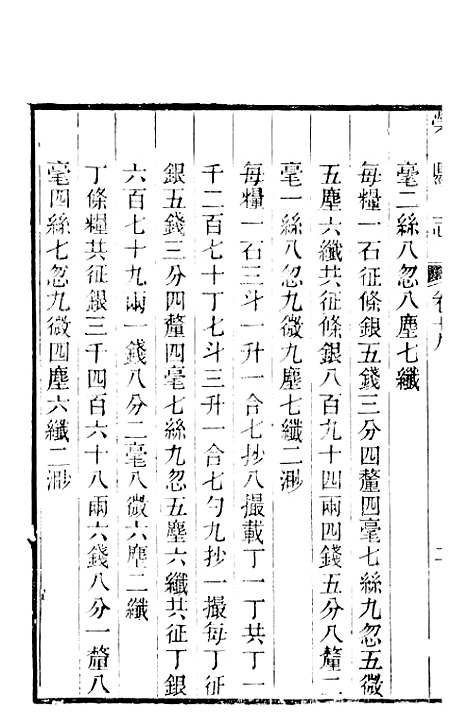 毫二絲八忽八塵七纖
每糧一石征條銀五錢三分四釐四毫七絲九忽五微
五塵六纖共征條銀八百九十四兩四錢五分八釐二
毫一絲八忽九微九塵七纖二渺
每糧一石三斗一升一合七抄八撮載丁一丁共丁一
千二百七十丁七斗三升一合七勺九抄一撮每丁征
銀五錢三分四釐四毫七絲九忽五塵六纖共征丁銀
六百七十九兩一錢八分二毫八微六塵二纖
丁條糧共征銀三千四百六十八兩六錢八分一釐八
毫四絲七忽九微四塵六纖二渺